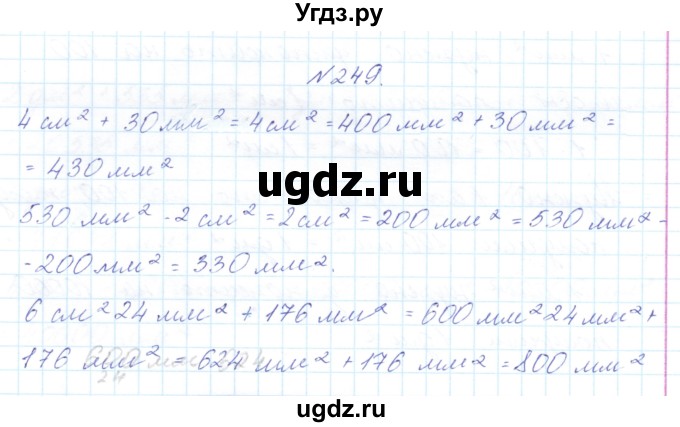 Угдз.ру
№249.
4 см² + 30 мм² = 4 см² = 400 мм² + 30 мм² =
= 430 мм²
ugdz.ru
530 мм² - 2 см² = 2 см² = 200 мм² = 530 мм² -
- 200 мм² = 330 мм².
6 см² 24 мм² + 176 мм² = 600 мм² 24 мм² +
176 мм² = 624 мм² + 176 мм² = 800 мм²
24
ugdz.ru